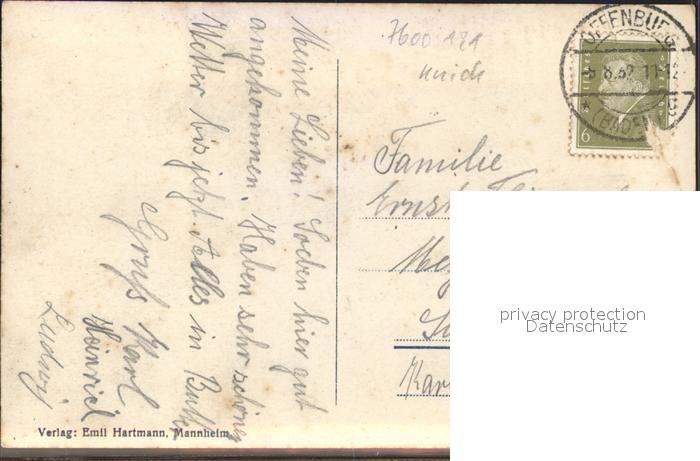 Meine Lieben! Soeben hier gut
angekommen. Haben sehr schönes
Wetter bis jetzt. Alles in Butter
Gruß Karl
Heinrich
Ludwig
7600 181
Knick
OFFENBURG
8.32 11-12
(BADEN)
6
Familie
Ernst
Kar
privacy protection
Datenschutz
Verlag: Emil Hartmann, Mannheim